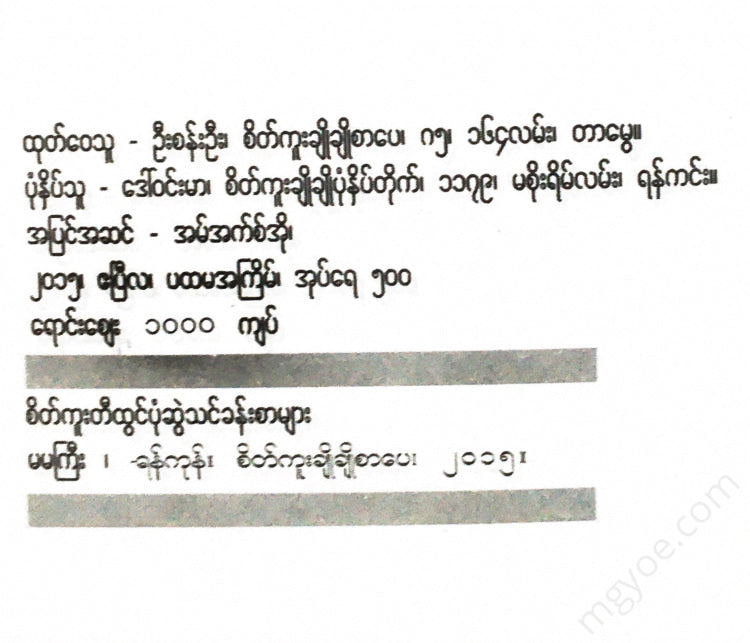 ထုတ်ဝေသူ - ဦးစန်းဦး၊ စိတ်ကူးချိုချိုစာပေ၊ ဂ၅၊ ၁၆၄လမ်း၊ တာမွေ။
ပုံနှိပ်သူ - ဒေါ်ဝင်းမာ၊ စိတ်ကူးချိုချိုပုံနှိပ်တိုက်၊ ၁၁၇၉၊ မစိုးရိမ်လမ်း၊ ရန်ကင်း။
အပြင်အဆင် - အမ်အက်စ်အို၊
၂၀၁၅၊ ဧပြီလ၊ ပထမအကြိမ်၊ အုပ်ရေ ၅၀၀
ရောင်းဈေး ၁၀၀၀ ကျပ်
စိတ်ကူးတီထွင်ပုံဆွဲသင်ခန်းစာများ
မမကြီး ၊ -ရန်ကုန်၊ စိတ်ကူးချိုချိုစာပေ၊ ၂၀၁၅၊
mgyoe.com